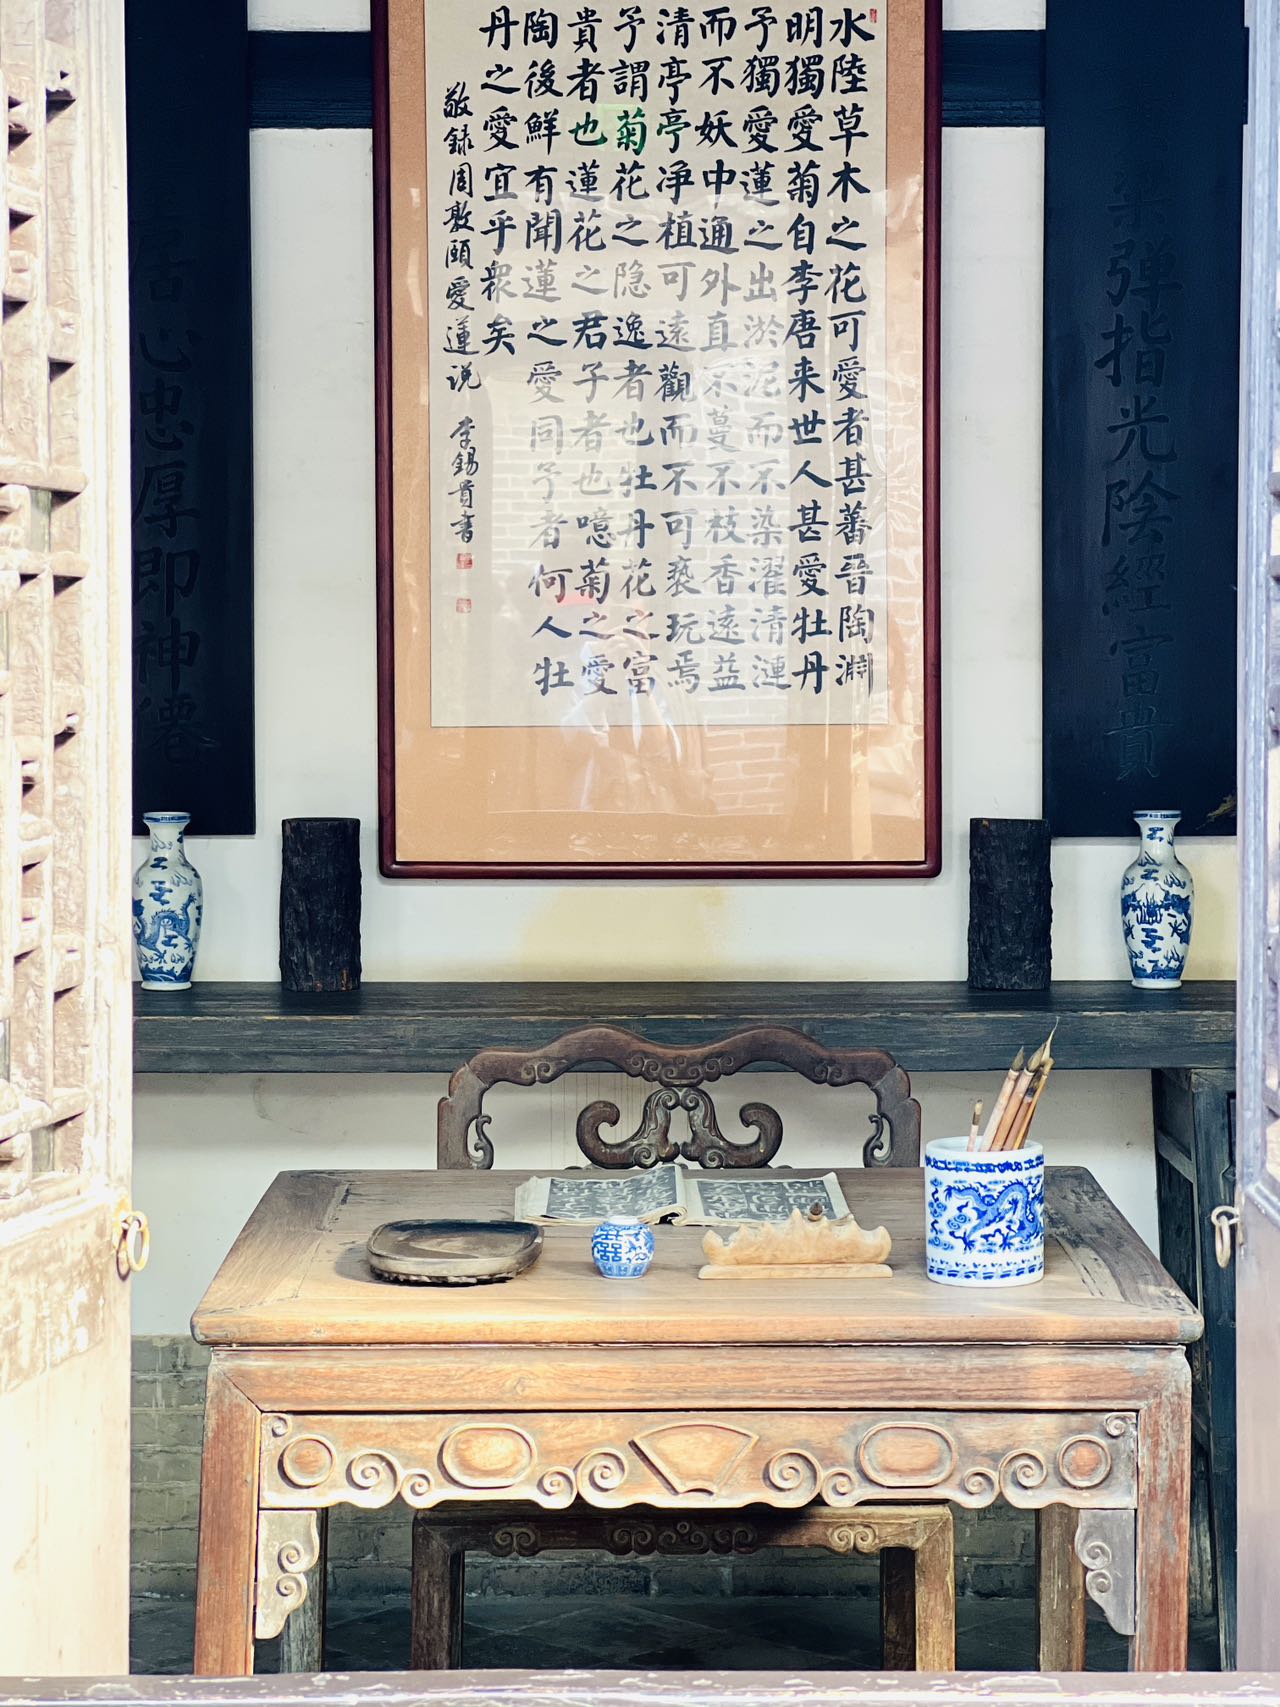 彈指光陰經富貴
水陸草木之花可愛者甚蕃晉陶淵
明獨愛菊自李唐来世人甚愛牡丹
予獨愛蓮之出淤泥而不染濯清漣
而不妖中通外直不蔓不枝香遠益
清亭亭净植可遠觀而不可亵玩焉
予謂菊花之隐逸者也牡丹花之富
貴者也蓮花之君子者也噫菊之愛
陶後鮮有聞蓮之愛同予者何人牡
丹之愛宜乎衆矣
敬録周敦颐愛蓮说 李錫貴書
居心忠厚即神僊